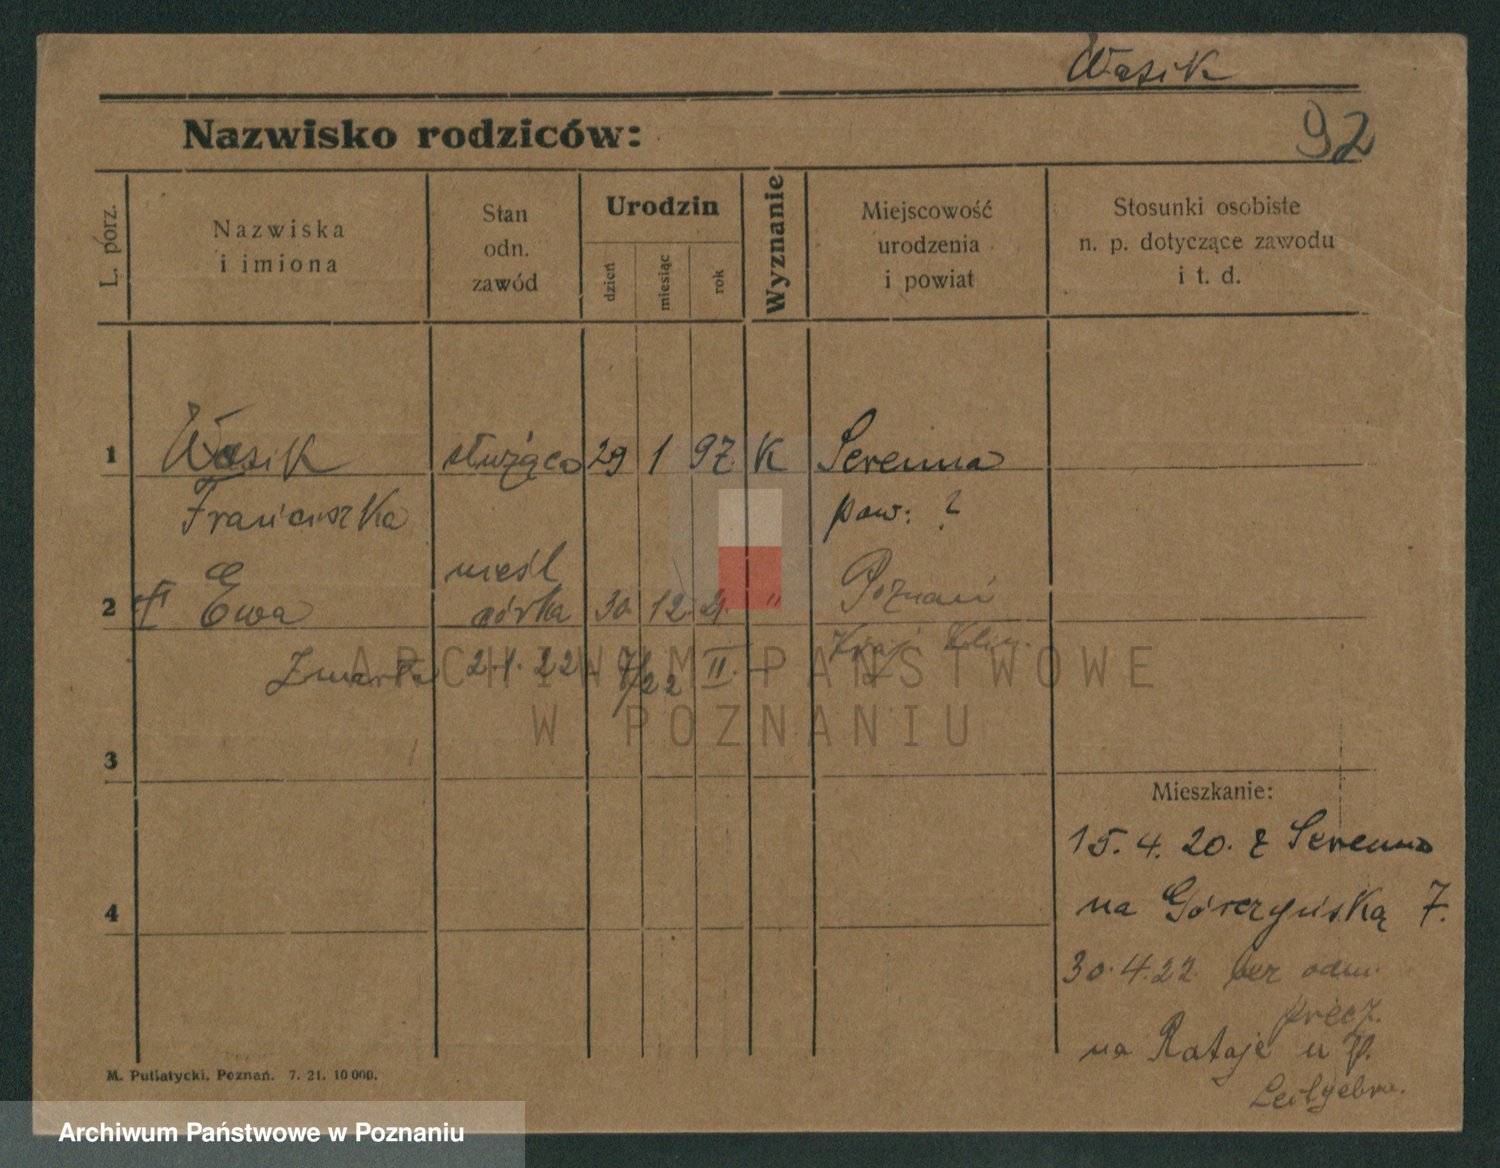 Wasik
Nazwisko rodziców:
92
L. porz.
Nazwiska
i imiona
Stan
odn.
zawód
Urodzin
dzień
miesiąc
rok
Wyznanie
Miejscowość
urodzenia
i powiat
Stosunki osobiste
n. p. dotyczące zawodu
i t. d.
1 Wasik służąca 29 1 97 K Serenna
Franciszka pow: ?
nieśl
2 Ewa córka 30 12 21. " Poznań
Zmarła 2.1.22. 7/22 II.
ARCHIWUM PAŃSTWOWE
W POZNANIU
3
Mieszkanie:
15.4.20. z Serenna
4
na Górczyńską 7.
30.4.22. bez odm.
na Rataje u
M. Putiatycki, Poznań. 7. 21. 10 000.
Leitgebra.
Archiwum Państwowe w Poznaniu